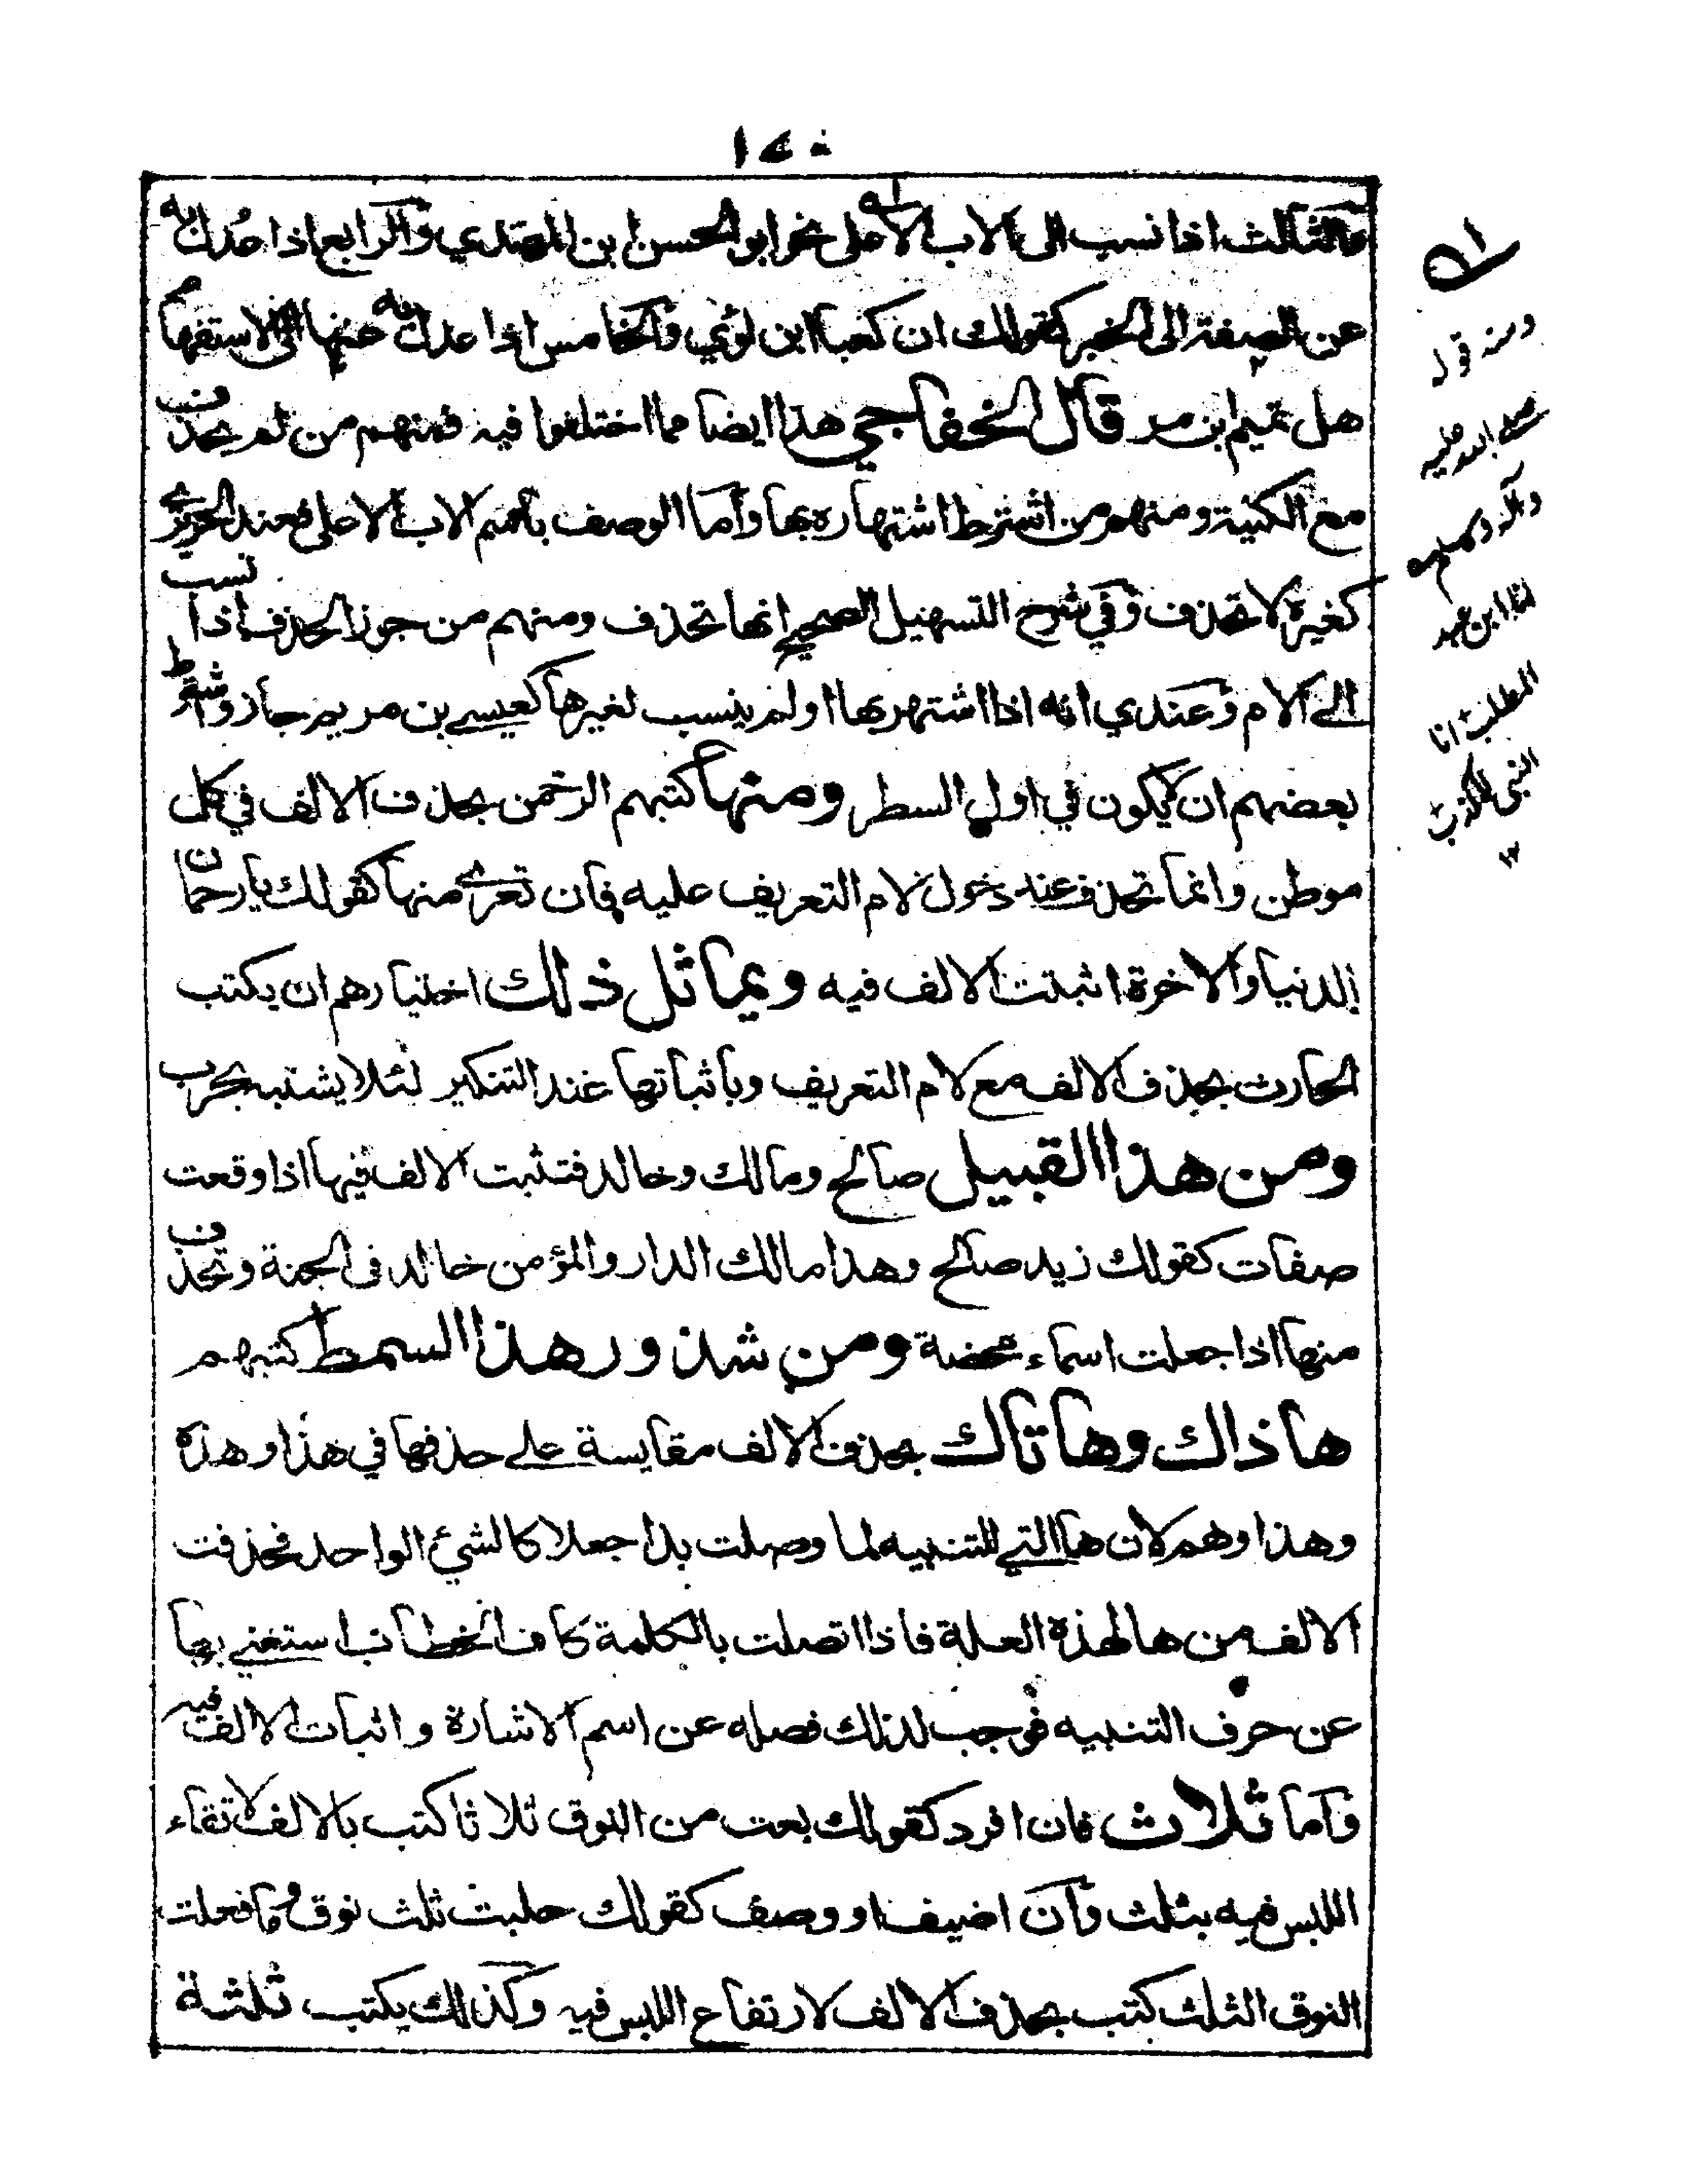 ١٤٠
والثالث اذا نسب الى الاب الاعلى نحو ابو الحسن ابن المهتدي والرابع اذا عدل به
عن الصفة الى الخبر كقولك ان كعبا ابن لؤي والخامس اذا عدل به عنها الى الاستفهام
هل تميم ابن مر قال الخفاجي هذا ايضا مما اختلفوا فيه فمنهم من لم يحذف
مع الكنية ومنهم من اشترط اشتهاره بها وأما الوصف باسم الاب الاعلى فعند الحريري
كغيره لا تحذف وفي شرح التسهيل الصحيح انها تحذف ومنهم من جوز الحذف اذا نسب
الى الام وعندي انه اذا اشتهر بها او لم ينسب لغيرها كعيسى بن مريم جاز وشرط
بعضهم ان لا يكون في اول السطر ومنها كتبهم الرحمن بحذف الالف في كل
موطن وانما تحذف عند دخول لام التعريف عليه فان تعرى منها كقولك يا رحمان
الدنيا والاخرة اثبتت الالف فيه ويماثل ذلك اختيارهم ان يكتب
الحارث بحذف الالف مع لام التعريف وباثباتها عند التنكير لئلا يشتبه بحرب
ومن هذا القبيل صالح ومالك وخالد فتثبت الالف فيها اذا وقعت
صفات كقولك زيد صالح وهذا مالك الدار والمؤمن خالد فى الجنة وتحذف
منها اذا جعلت اسماء محضة ومن شذور هذا السمط كتبهم
هاذاك وهاتاك بحذف الالف مقايسة على حذفها في هذا وهذه
وهذا وهم لان ها التي للتنبيه لما وصلت بذا جعلا كالشئ الواحد فحذفت
الالف من ها لهذه العلة فاذا اتصلت بالكلمة كاف الخطاب استغنى بها
عن حرف التنبيه فوجب لذلك فصله عن اسم الاشارة واثبات الالف فيه
وأما ثلاث فان افرد كقولك بعت من النوق ثلاثا كتب بالالف لاتقاء
اللبس فيه بثلث وان اضيف او وصف كقولك حلبت ثلث نوق وما فعلت
النوق الثلث كتب بحذف الالف لارتفاع اللبس فيه وكذلك يكتب ثلثة
ومنه قوله
صلى الله عليه
وآله وسلم
انا ابن عبد
المطلب انا
النبى لا كذب
١٢